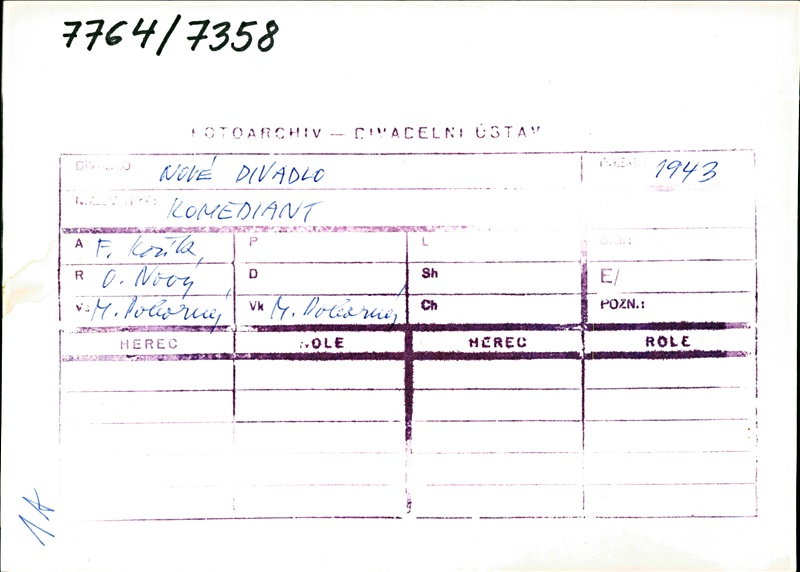 7764/7358
FOTOARCHIV — DIVADELNÍ ÚSTAV
DIVADLO NOVÉ DIVADLO 1943
KOMEDIANT
A F. Kožík, P L
R O. Nový, D Sh E/
Vs M. Pokorný Vk M. Pokorný Ch POZN.:
HEREC ROLE HEREC ROLE
1A